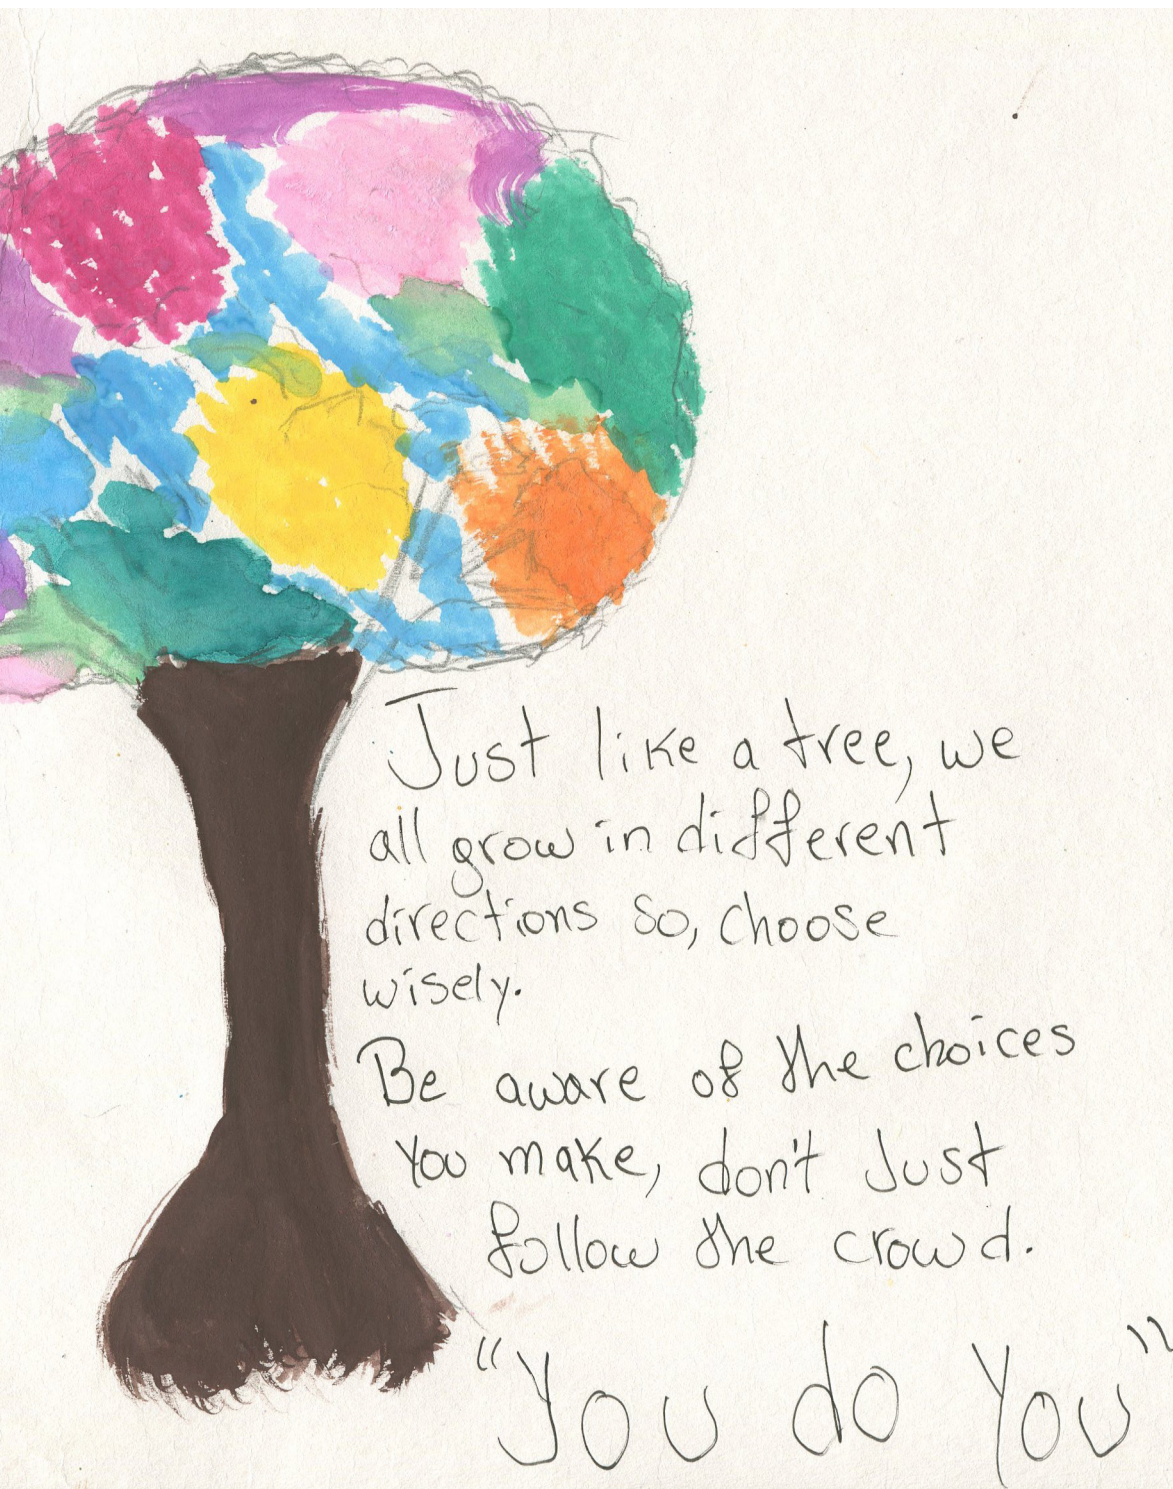 Just like a tree, we
all grow in different
directions so, choose
wisely.
Be aware of the choices
You make, don't Just
follow the crowd.
"You do You"